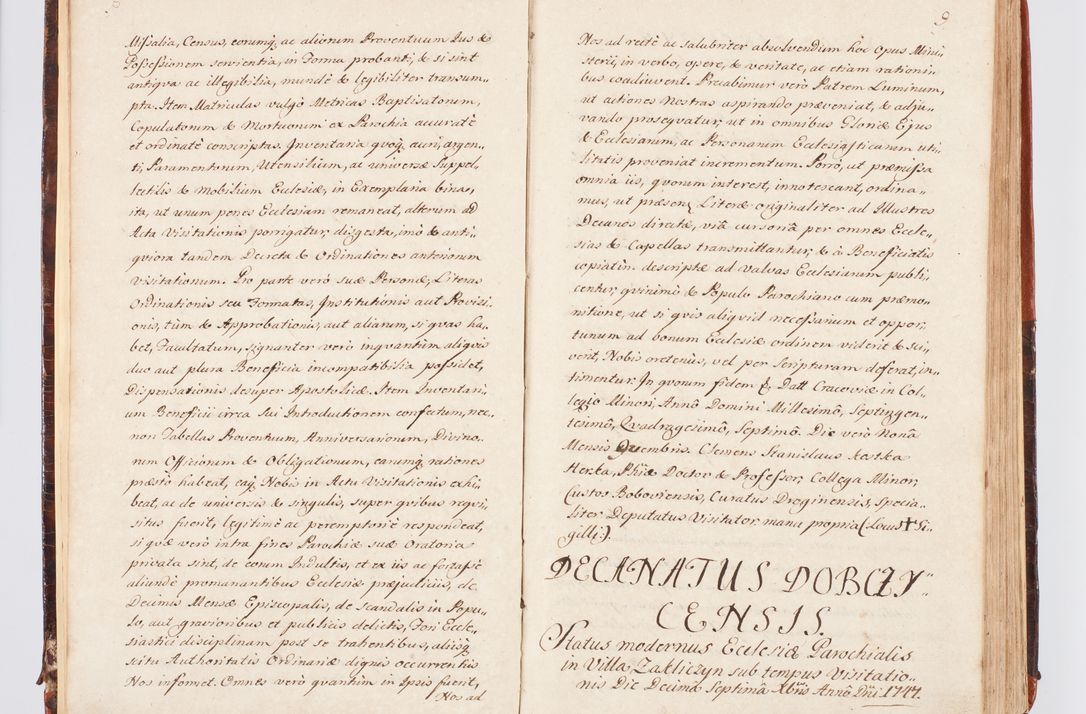 Missalia, Census, eorumq; ac aliorum Proventuum Jus &
Possessionem servientia, in Forma probanti, & si sint
antiqva ac illegibilia, mundè & legibiliter transum„
pta. Item Matriculas vulgò Metricas Baptisatorum,
Copulatorum & Mortuorum ex Parochia accuratè
et ordinatè conscriptas. Inventaria qvoq; auri, argen„
ti, Paramentorum, Utensilium, ac universæ Suppel„
lectilis & mobilium Ecclesiæ, in Exemplaria bina,
ita, ut unum penes Ecclesiam remaneat, alterum ad
Acta Visitationis porrigatur, disgesta, imò & anti„
qviora tandem Decreta & Ordinationes anteriorum
visitationum. Pro parte verò suæ Personæ, Literas
Ordinationis seu Formatas, Institutionis aut Provisi„
onis, tùm & Approbationis, aut aliarum, si qvas ha„
bet, Facultatum, signanter verò inqvantùm aliqvis
duo aut plura Beneficia incompatibilia possidet,
Dispensationis desuper Apostolicæ. Item Inventari„
um Beneficii circa sui Introductionem confectum, nec„
non Tabellas Proventuum, Anniversariorum, Divino„
rum Officiorum & Obligationum, earumq; rationes
præstò habeat, eaq; Nobis in Actu Visitationis exhi„
beat, ac de universis & singulis, super qvibus reqvi„
situs fuerit, legitimè ac peremptoriè respondeat,
si qvæ verò intra fines Parochiæ suæ Oratoria
privata sint, de eorum Indultis, et ex iis ac forsassè
aliundè promanantibus Ecclesiæ præjudiciis, de
Decimis Mensæ Episcopalis, de Scandalis in Popu„
lo, aut gravioribus et publicis delictis, Fori Eccle„
siastici disciplinam post se trahentibus, aliisq;
scitu Authoritatis Ordinariæ dignis occurrentiis
Nos informet. Omnes verò qvantùm in Ipsis fuerit,
Nos ad
9
Nos ad rectè ac salubriter absolvendum hoc Opus Mini„
sterii, in verbo, opere, & veritate, ac etiam rationi„
bus coadiuvent. Precabimur verò Patrem Luminum,
ut actiones Nostras aspirando præveniat, & adju„
vando prosequatur, ut in omnibus Gloriæ Ejus
& Ecclesiarum, ac Personarum Ecclesiasticarum uti„
litatis proveniat incrementum. Porrò, ut præmissa
omnia iis, qvorum interest, innotescant, ordina„
mus, ut præsens Literæ originaliter ad Illustres
Decanos directæ, viâ cursoriâ per omnes Eccle„
sias & Capellas transmittantur, & à Beneficiatis
copiatim descriptæ ad valvas Ecclesiarum publi„
centur, qvinimò & Populo Parochiano cum præmo„
nitione, ut si qvis aliqvid necessarium et oppor„
tunum ad bonum Ecclesiæ ordinem viderit & sci„
verit, Nobis oretenùs, vel per Scripturam deferat, in„
timentur. In qvorum fidem &. Datt Cracoviæ in Col„
legio Minori, Annô Domini Millesimô, Septingen„
tesimô, Qvadragesimô, Septimô. Die verò Nonâ
Mensis Xbembris. Clemens Stanislaus Kostka
Herka, Phiæ Doctor & Professor, Collega Minor,
Custos Boboviensis, Curatus Droginensis, Specia„
liter Deputatus Visitator, manu propria (Locus † Si„
gilli:).
DECANATUS DOBCZY„
CENSIS.
Status modernus Ecclesiæ Parochialis
in Villa Zakliczyn sub tempus Visitatio„
nis Die Decimâ Septimâ Xbris Annô Dni 1747.